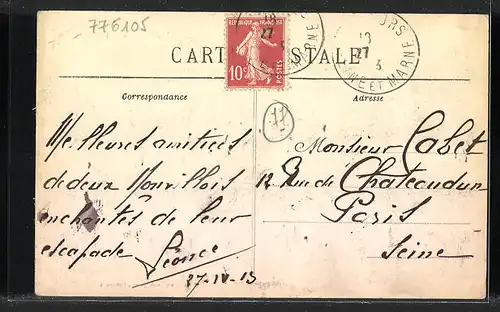 776105
CARTE POSTALE
REPUBLIQUE FRANÇAISE
10c POSTES
13
27
3
SEINE ET MARNE
Correspondance
Adresse
11
Meilleures amitiées
de deux
enchantés de leur
escapade Léonce
27-IV-13
Monsieur Cabet
12 Rue de Chateaudun
Paris
Seine